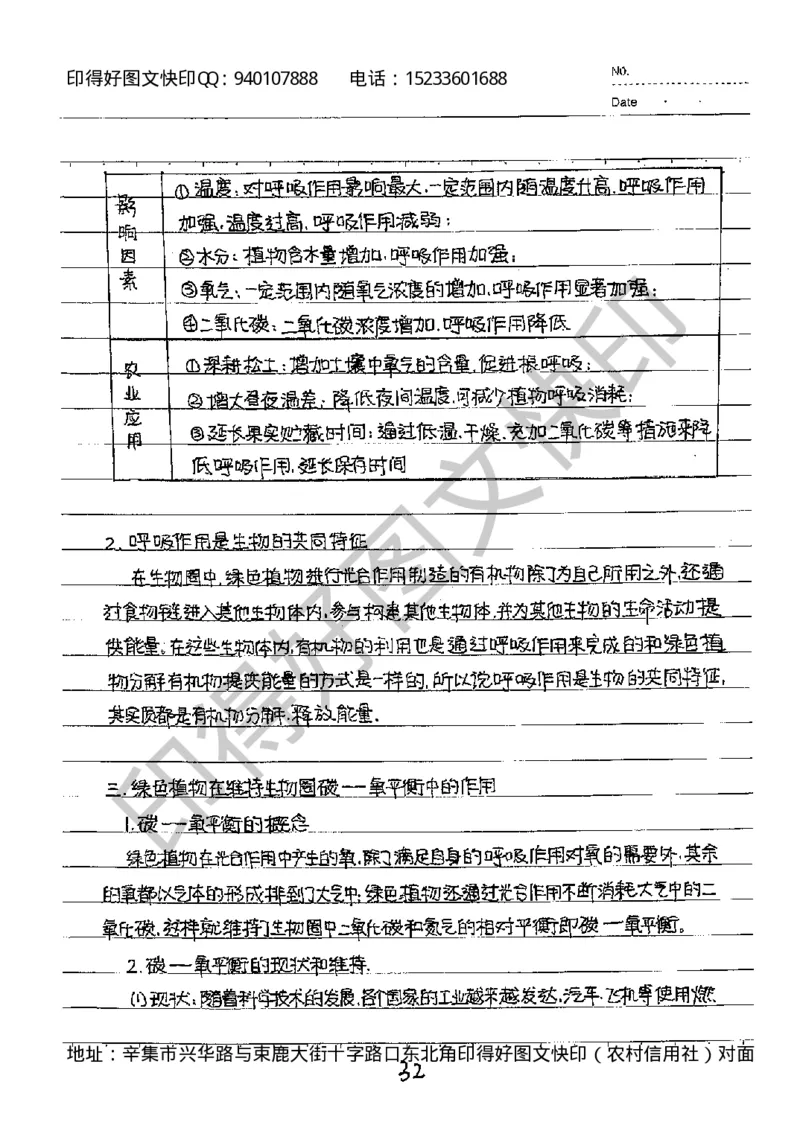 印得好图文快印QQ：940107888 电话：15233601688
No.
Date
影响因素
①温度：对呼吸作用影响最大，一定范围内随温度升高，呼吸作用
加强，温度过高，呼吸作用减弱；
②水分：植物含水量增加，呼吸作用加强；
③氧气：一定范围内随氧气浓度的增加，呼吸作用显著加强；
④二氧化碳：二氧化碳浓度增加，呼吸作用降低
农业应用
①深耕松土：增加土壤中氧气的含量，促进根呼吸；
②增大昼夜温差，降低夜间温度，可减少植物呼吸消耗；
③延长果实贮藏时间：通过低温、干燥、充加二氧化碳等措施来降
低呼吸作用，延长保存时间
2.呼吸作用是生物的共同特征
在生物圈中，绿色植物进行光合作用制造的有机物除了为自己所用之外，还通
过食物链进入其他生物体内，参与构建其他生物体，并为其他生物的生命活动提
供能量。在这些生物体内，有机物的利用也是通过呼吸作用来完成的和绿色植
物分解有机物提供能量的方式是一样的，所以说呼吸作用是生物的共同特征，
其实质都是有机物分解，释放能量。
三.绿色植物在维持生物圈碳一一氧平衡中的作用
1.碳一一氧平衡的概念
绿色植物在光合作用中产生的氧，除了满足自身的呼吸作用对氧的需要外，其余
的氧都以气体的形式排到了大气中；绿色植物还通过光合作用不断消耗大气中的二
氧化碳，这样就维持了生物圈中二氧化碳和氧气的相对平衡即碳一一氧平衡。
2.碳一一氧平衡的现状和维持.
(1)现状：随着科学技术的发展，各个国家的工业越来越发达，汽车、飞机等使用燃
地址：辛集市兴华路与束鹿大街十字路口东北角印得好图文快印（农村信用社）对面
32
印得好图文快印